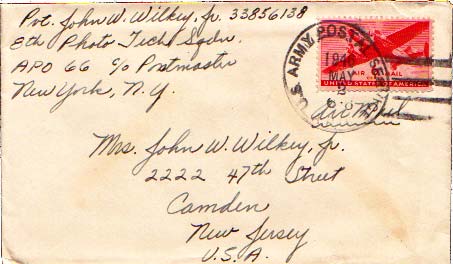 Pvt. John W. Wilkey, Jr. 33856138
8th Photo Tech. Sqdn.
APO 66 c/o Postmaster
New York, N.Y.
U.S. ARMY POSTAL
MAY
2
AIR MAIL
UNITED STATES OF AMERICA
Air Mail
Mrs. John W. Wilkey, Jr.
2222 47th Street
Camden
New Jersey
U.S.A.